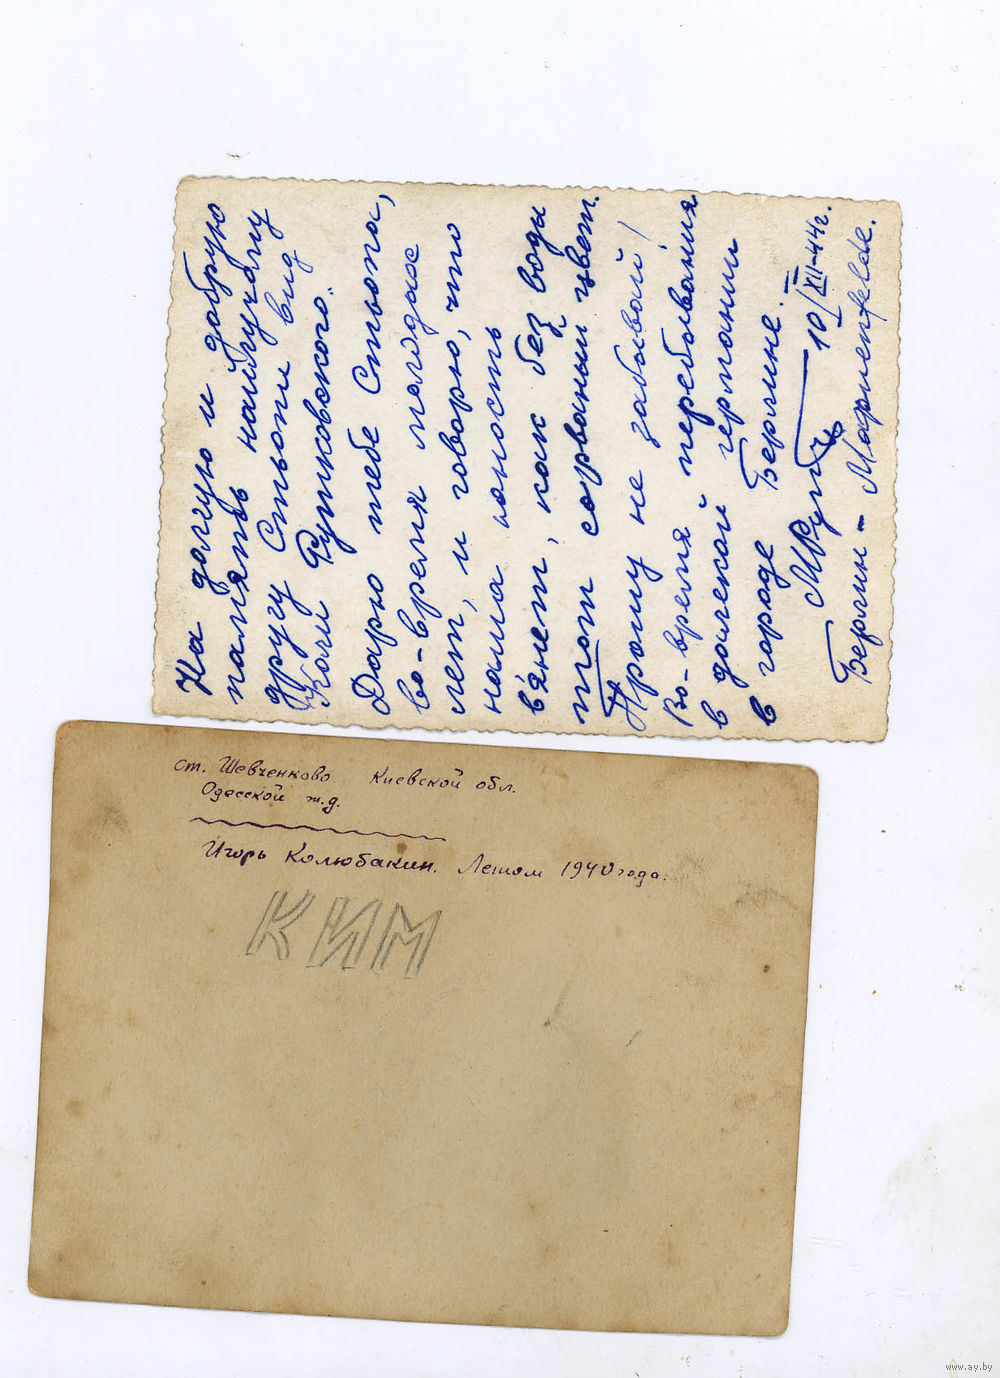 На долгую и добрую
память найлучачу
другу Стьопи вид
Коли Рутковского."
Дарю тебе Стьопа,
во-время маладых
лет, и говорю, что
наша юность
вянет, как без воды
тот сорваный цвет.
Прошу не забывай!
Во-время перебывания
в далекой германии
в городе Берлине.
МРутк 10/XII-44г.
Берлин-Марienfelde.
ст. Шевченково Киевской обл.
Одесской ж.д.
Игорь Колюбакин. Летом 1940 года.
КИМ
www.ay.by